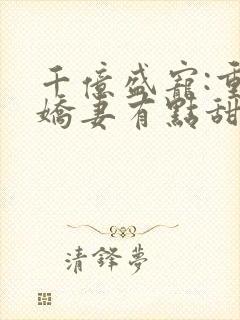 千億盛寵:重
嬌妻有點甜
清鋒夢